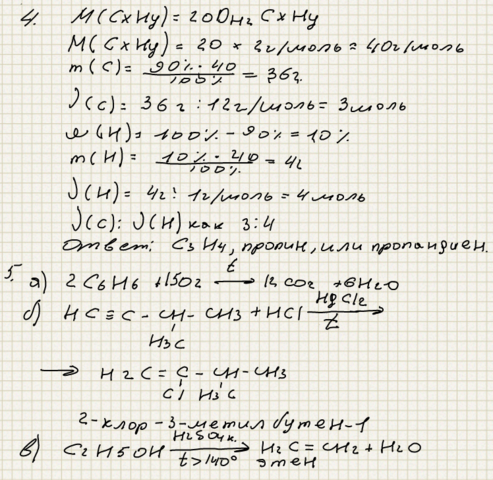 4. M(CxHy) = 20D H2 CxHy
M(CxHy) = 20 × 2г/моль = 40г/моль
m(C) = 90% · 40 / 100% = 36г.
ν(C) = 36г : 12г/моль = 3моль
ω(H) = 100% - 90% = 10%
m(H) = 10% · 40 / 100% = 4г
ν(H) = 4г : 1г/моль = 4моль
ν(C) : ν(H) как 3:4
Ответ: C3H4, пропин, или пропандиен.
5. а) 2C6H6 + 15O2 t → 12CO2 + 6H2O
б) HC ≡ C - CH - CH3 + HCl HgCl2 t →
H3C
→ H2C = C - CH - CH3
Cl H3C
2-хлор-3-метилбутен-1
в) C2H5OH H2SO4к. t>140° → H2C = CH2 + H2O
этен